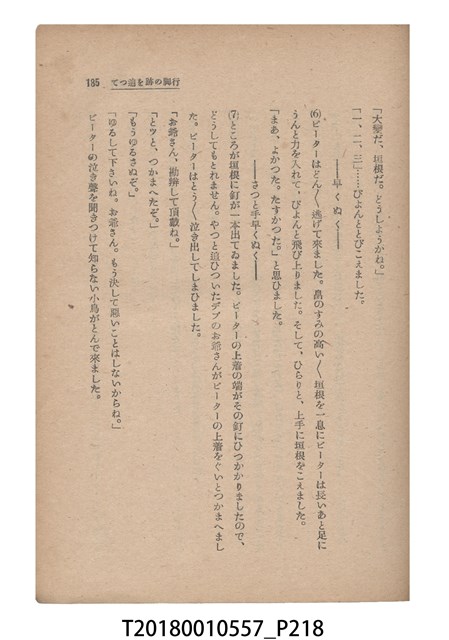 行脚の跡を追つて 185
「大變だ、垣根だ。どうしようかね。」
「一、二、三」……ぴよんととびこえました。
――早くぬく――
(6)ピーターはどん〱逃げて來ました。畠のすみの高い〱垣根を一息にピーターは長いあと足に
うんと力を入れて、ぴよんと飛び上りました。そして、ひらりと、上手に垣根をこえました。
「まあ、よかつた。たすかつた。」と思ひました。
――さつと手早くぬく――
(7)ところが垣根に釘が一本出てゐました。ピーターの上着の端がその釘にひつかかりましたので、
どうしてもとれません。やつと追ひついたデブのお爺さんがピーターの上着をぐいとつかまへまし
た。ピーターはとう〱泣き出してしまひました。
「お爺さん、勘辨して頂戴ね。」
「とツと、つかまへたぞ。」
「もうゆるさぬぞ。」
「ゆるして下さいね。お爺さん。もう決して惡いことはしないからね。」
ピーターの泣き聲を聞きつけて知らない小鳥がとんで來ました。
T20180010557_P218